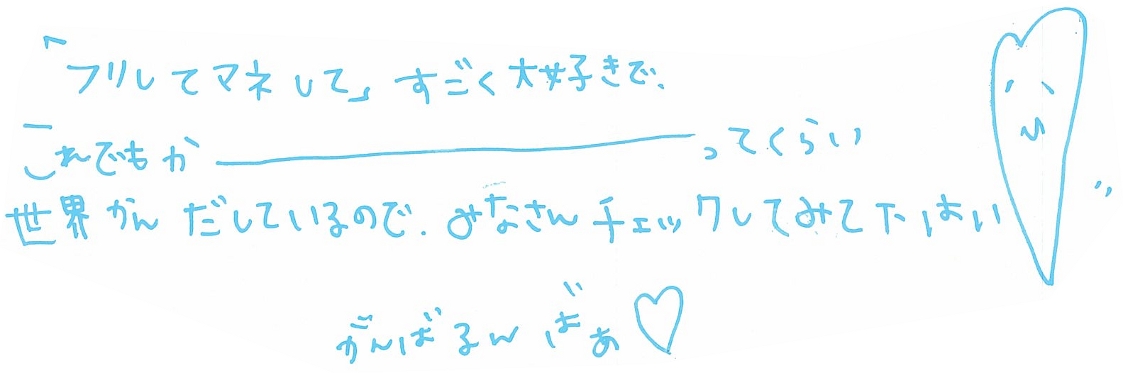 「フリしてマネして」すごく大好きで、
これでもか―――――――ってくらい
世界かんだしているので、みなさんチェックしてみて下はい
がんばるんばぁ♡